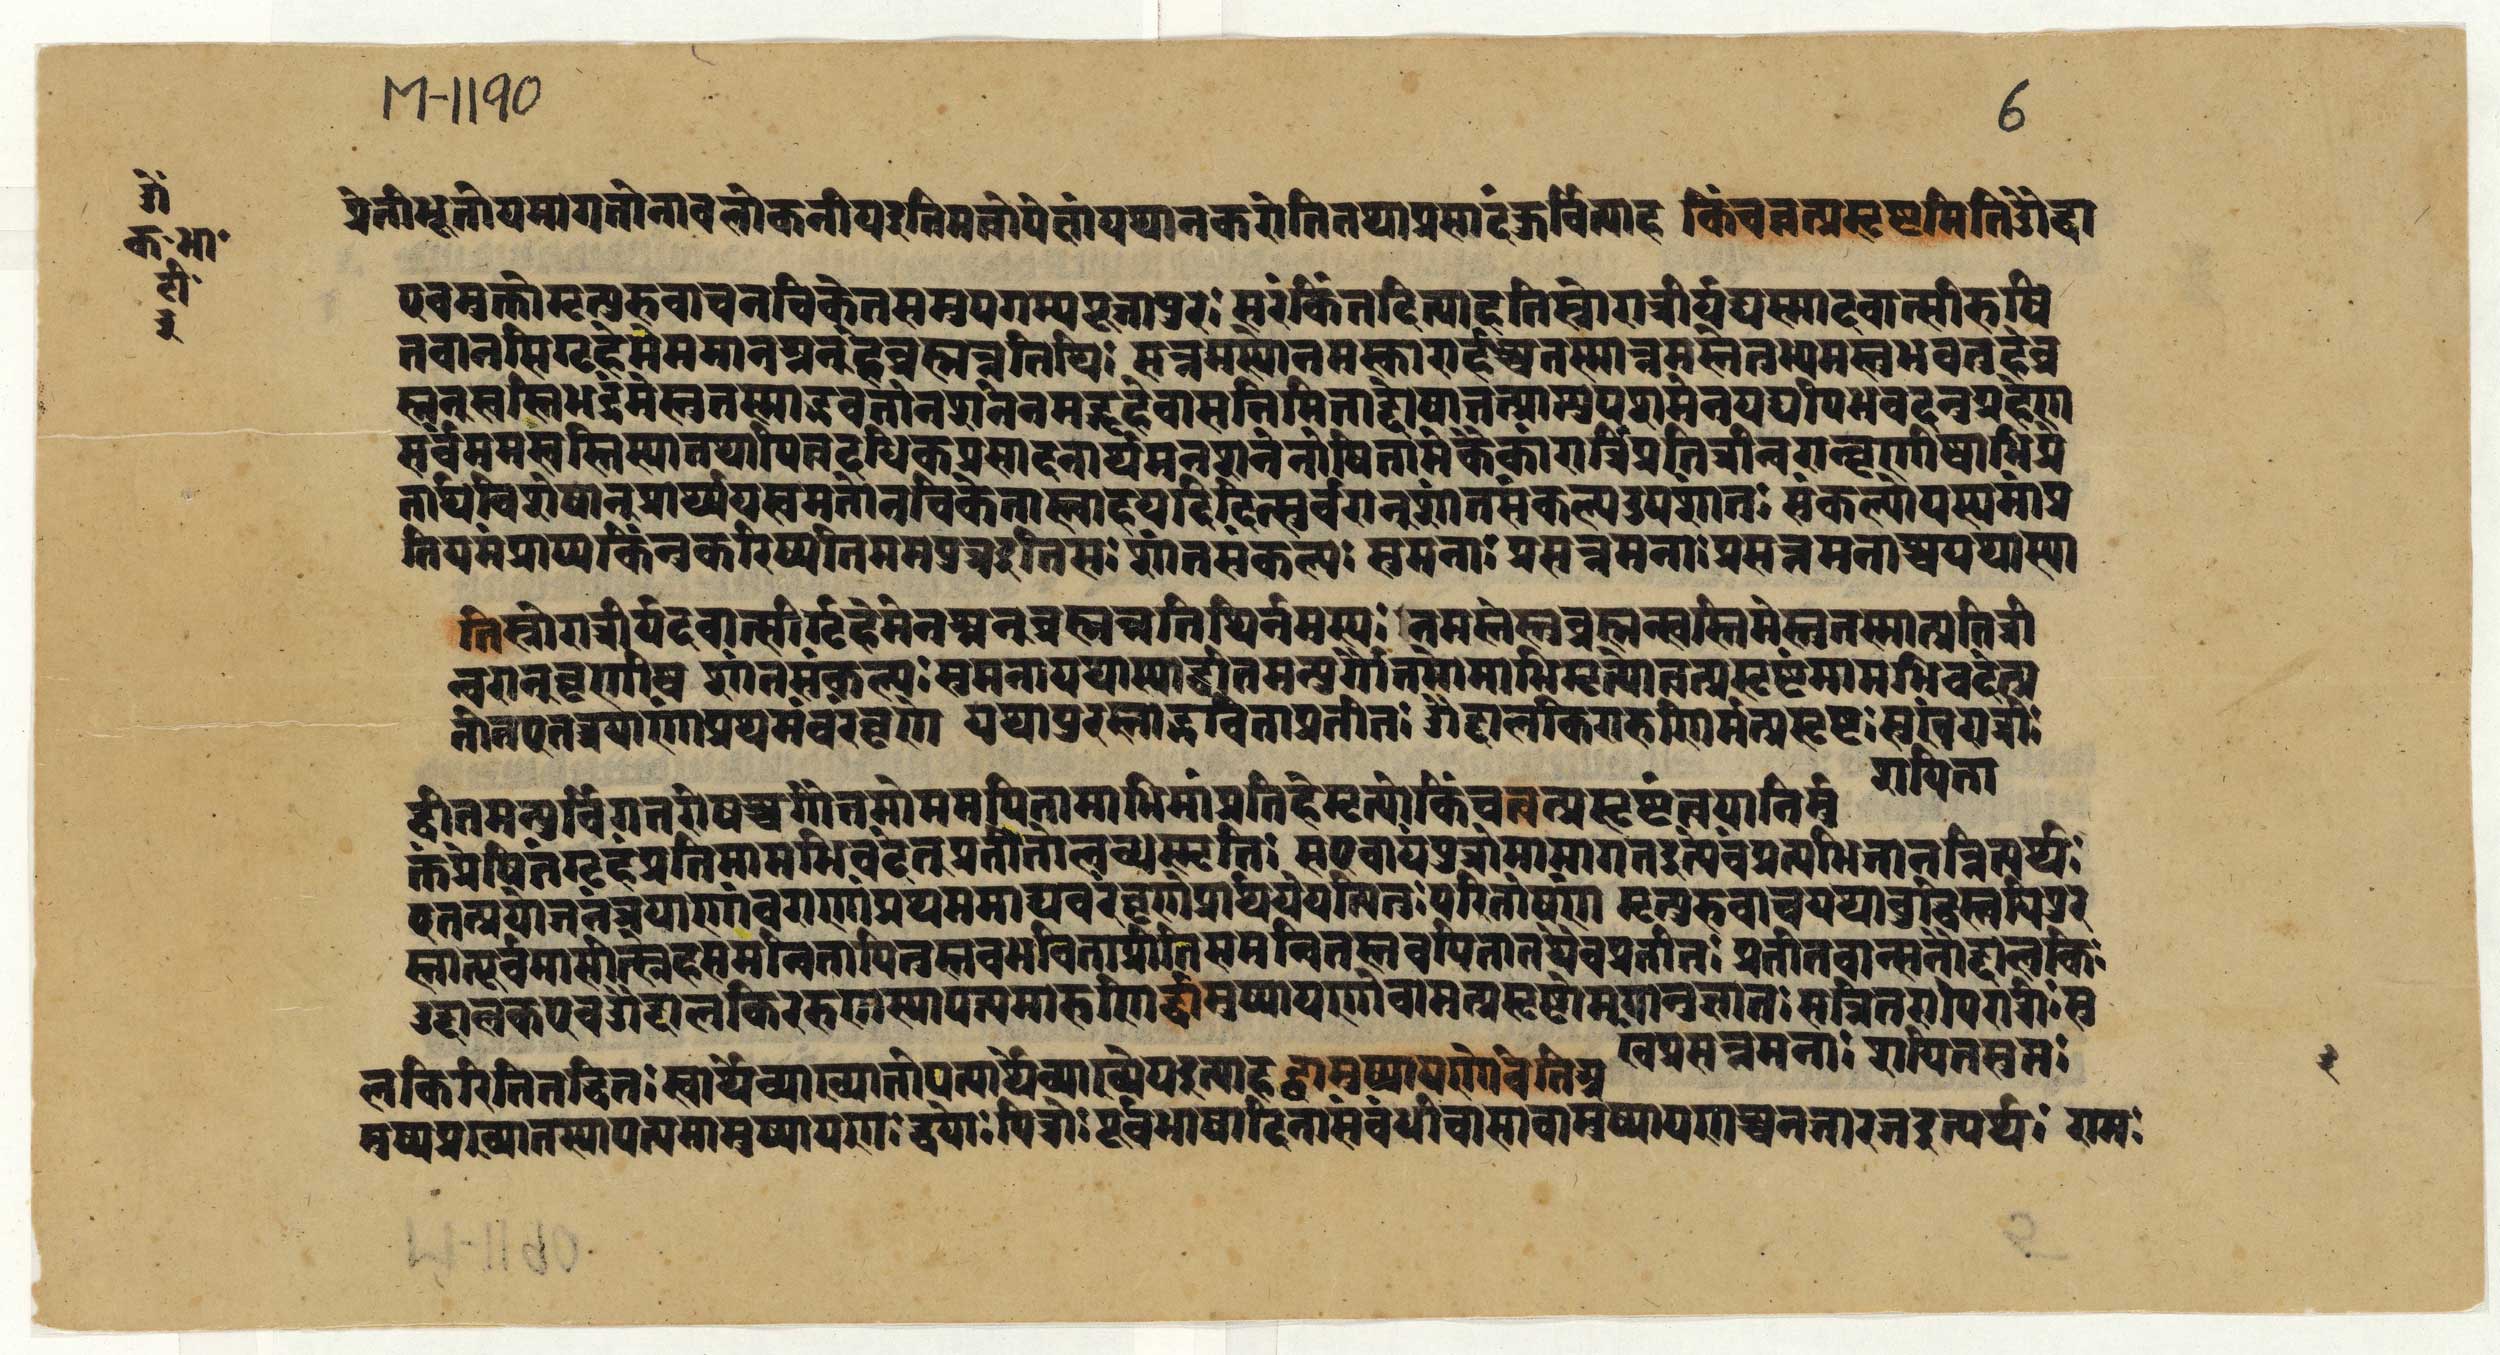 M-1190
6
ॐ
क॰ भा॰
टी॰
३
प्रेतीभूतोयमागतोनावलोकनीयइतिमत्वोपेक्षांयथानकरोतितथाप्रसादंकुर्वित्याह किंचत्वत्प्रसृष्टमितिॐद्दा
एवमुक्तोमृत्युरुवाचनचिकेतसमुपगम्यपूजापुरः सरंकिंतदित्याहतिस्रोरात्रीर्यद्यस्मादवात्सीरुषि
तवानसिगृहेमेममानश्नन्हेब्रह्मन्नतिथिः सन्नमस्योनमस्कारार्हश्चतस्मान्नमस्तेतुभ्यमस्तुभवतुहेब्र
ह्मन्स्वस्तिभद्रंमेस्तुतस्माद्भवतोनशनेनमद्गृहेवासनिमित्ताद्दोषात्तत्प्राप्त्युपशमेनयद्यपिभवदनुग्रहेण
सर्वंममस्वस्तिस्यात्तथापित्वदधिकप्रसादनार्थमनशनेनोषितामेकैकांरात्रिंप्रतित्रीन्वरान्वृणीष्वाभिप्रे
तार्थविशेषान्प्रार्थयस्वमत्तोनचिकेतास्त्वाहयदिदित्सुर्वरान्शांतसंकल्पउपशांतः संकल्पोयस्यमांप्र
तियमंप्राप्यकिंनुकरिष्यतिममपुत्रइतिसः शांतसंकल्पः सुमनाः प्रसन्नमनाः प्रसन्नमनाश्चयथास्या
तिस्रोरात्रीर्यदवात्सीर्गृहेमेनश्नन्ब्रह्मन्नतिथिर्नमस्यः नमस्तेस्तुब्रह्मन्स्वस्तिमेस्तुतस्मात्प्रतित्री
न्वरान्वृणीष्व शांतसंकल्पः सुमनायथास्याद्वीतमन्युर्गौतमोमाभिमृत्योत्वत्प्रसृष्टंमामभिवदेत्प्र
तीतएतत्त्रयाणांप्रथमंवरंवृणे यथापुरस्ताद्भविताप्रतीतः ॐद्दालकिरारुणिर्मत्प्रसृष्टः सुखंरात्रीः
शयिता
द्वीतमन्युर्विगतरोषश्चगौतमोममपितामाभिमांप्रतिहेमृत्योकिंचत्वत्प्रसृष्टंत्वयानिर्मु
क्तंप्रेषितंगृहंप्रतिमामभिवदेत्प्रतीतोलब्धस्मृतिः सएवायंपुत्रोमामागतइत्येवंप्रत्यभिजानन्नित्यर्थः
एतत्प्रयोजनंत्रयाणांवराणांप्रथममाद्यंवरंवृणेप्रार्थयेयत्पितुः परितोषणं मृत्युरुवाचयथाबुद्धिस्त्वयिपुर
स्तात्पूर्वमासीत्स्नेहसमन्वितापितुस्तवभविताप्रीतिसमन्वितस्तवपितातथैवप्रतीतः प्रतीतवान्सन्नौद्दालकिः
उद्दालकएवॐद्दालकिररुणस्यापत्यमारुणिर्द्व्यामुष्यायणोवामत्प्रसृष्टोमयानुज्ञातः सन्नितराअपिरात्रीः सु
खंप्रसन्नमनाः शयितस्वमः
लकिरितितद्धितः स्वार्थेव्याख्यातोपत्यार्थेव्याख्येयइत्याह द्व्यामुष्यायणोवेतिअ
मुष्यप्रख्यातस्यापत्यमामुष्यायणः द्वयोः पित्रोः पूर्वभाषादिनासंबंधीवासावामुष्यायणश्चेतजारजइत्यर्थः राम॰
३